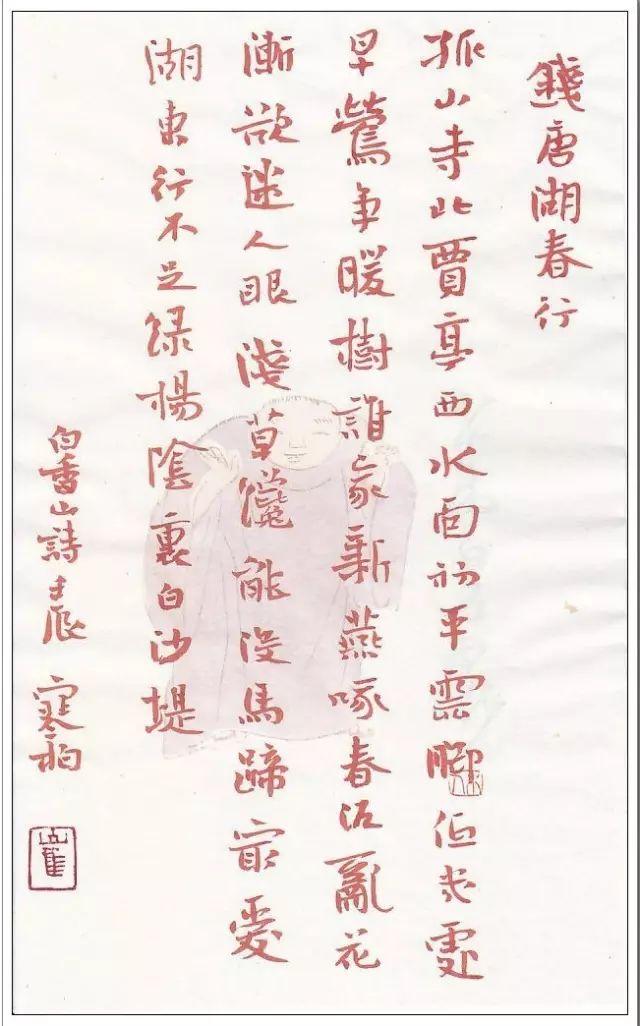 錢唐湖春行
孤山寺北賈亭西水面初平雲腳低幾處
早鶯爭暖樹誰家新燕啄春泥亂花
漸欲迷人眼淺草纔能没馬蹄冣愛
湖東行不足綠楊陰裏白沙堤
白香山詩壬辰寒柏
崔